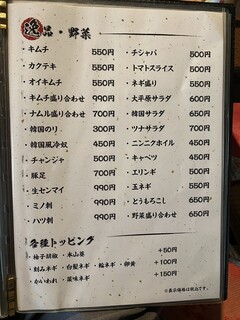 逸品・野菜
・キムチ 550円
・カクテキ 550円
・オイキムチ 550円
・キムチ盛り合わせ 990円
・ナムル盛り合わせ 700円
・韓国のり 300円
・韓国風冷奴 450円
・チャンジャ 500円
・豚足 700円
・生センマイ 990円
・ミノ刺 990円
・ハツ刺 990円
・チシャバ 500円
・トマトスライス 500円
・ネギ盛り 550円
・大平原サラダ 600円
・韓国サラダ 650円
・ツナサラダ 700円
・ニンニクホイル 450円
・キャベツ 450円
・エリンギ 500円
・玉ネギ 550円
・とうもろこし 650円
・野菜盛り合わせ 650円
各種トッピング
・柚子胡椒 ・本山葵 +50円
・刻みネギ ・白髪ネギ ・輪ネギ ・卵黄 +100円
・かいわれ ・薬味ネギ +150円
※表示価格は税込です。